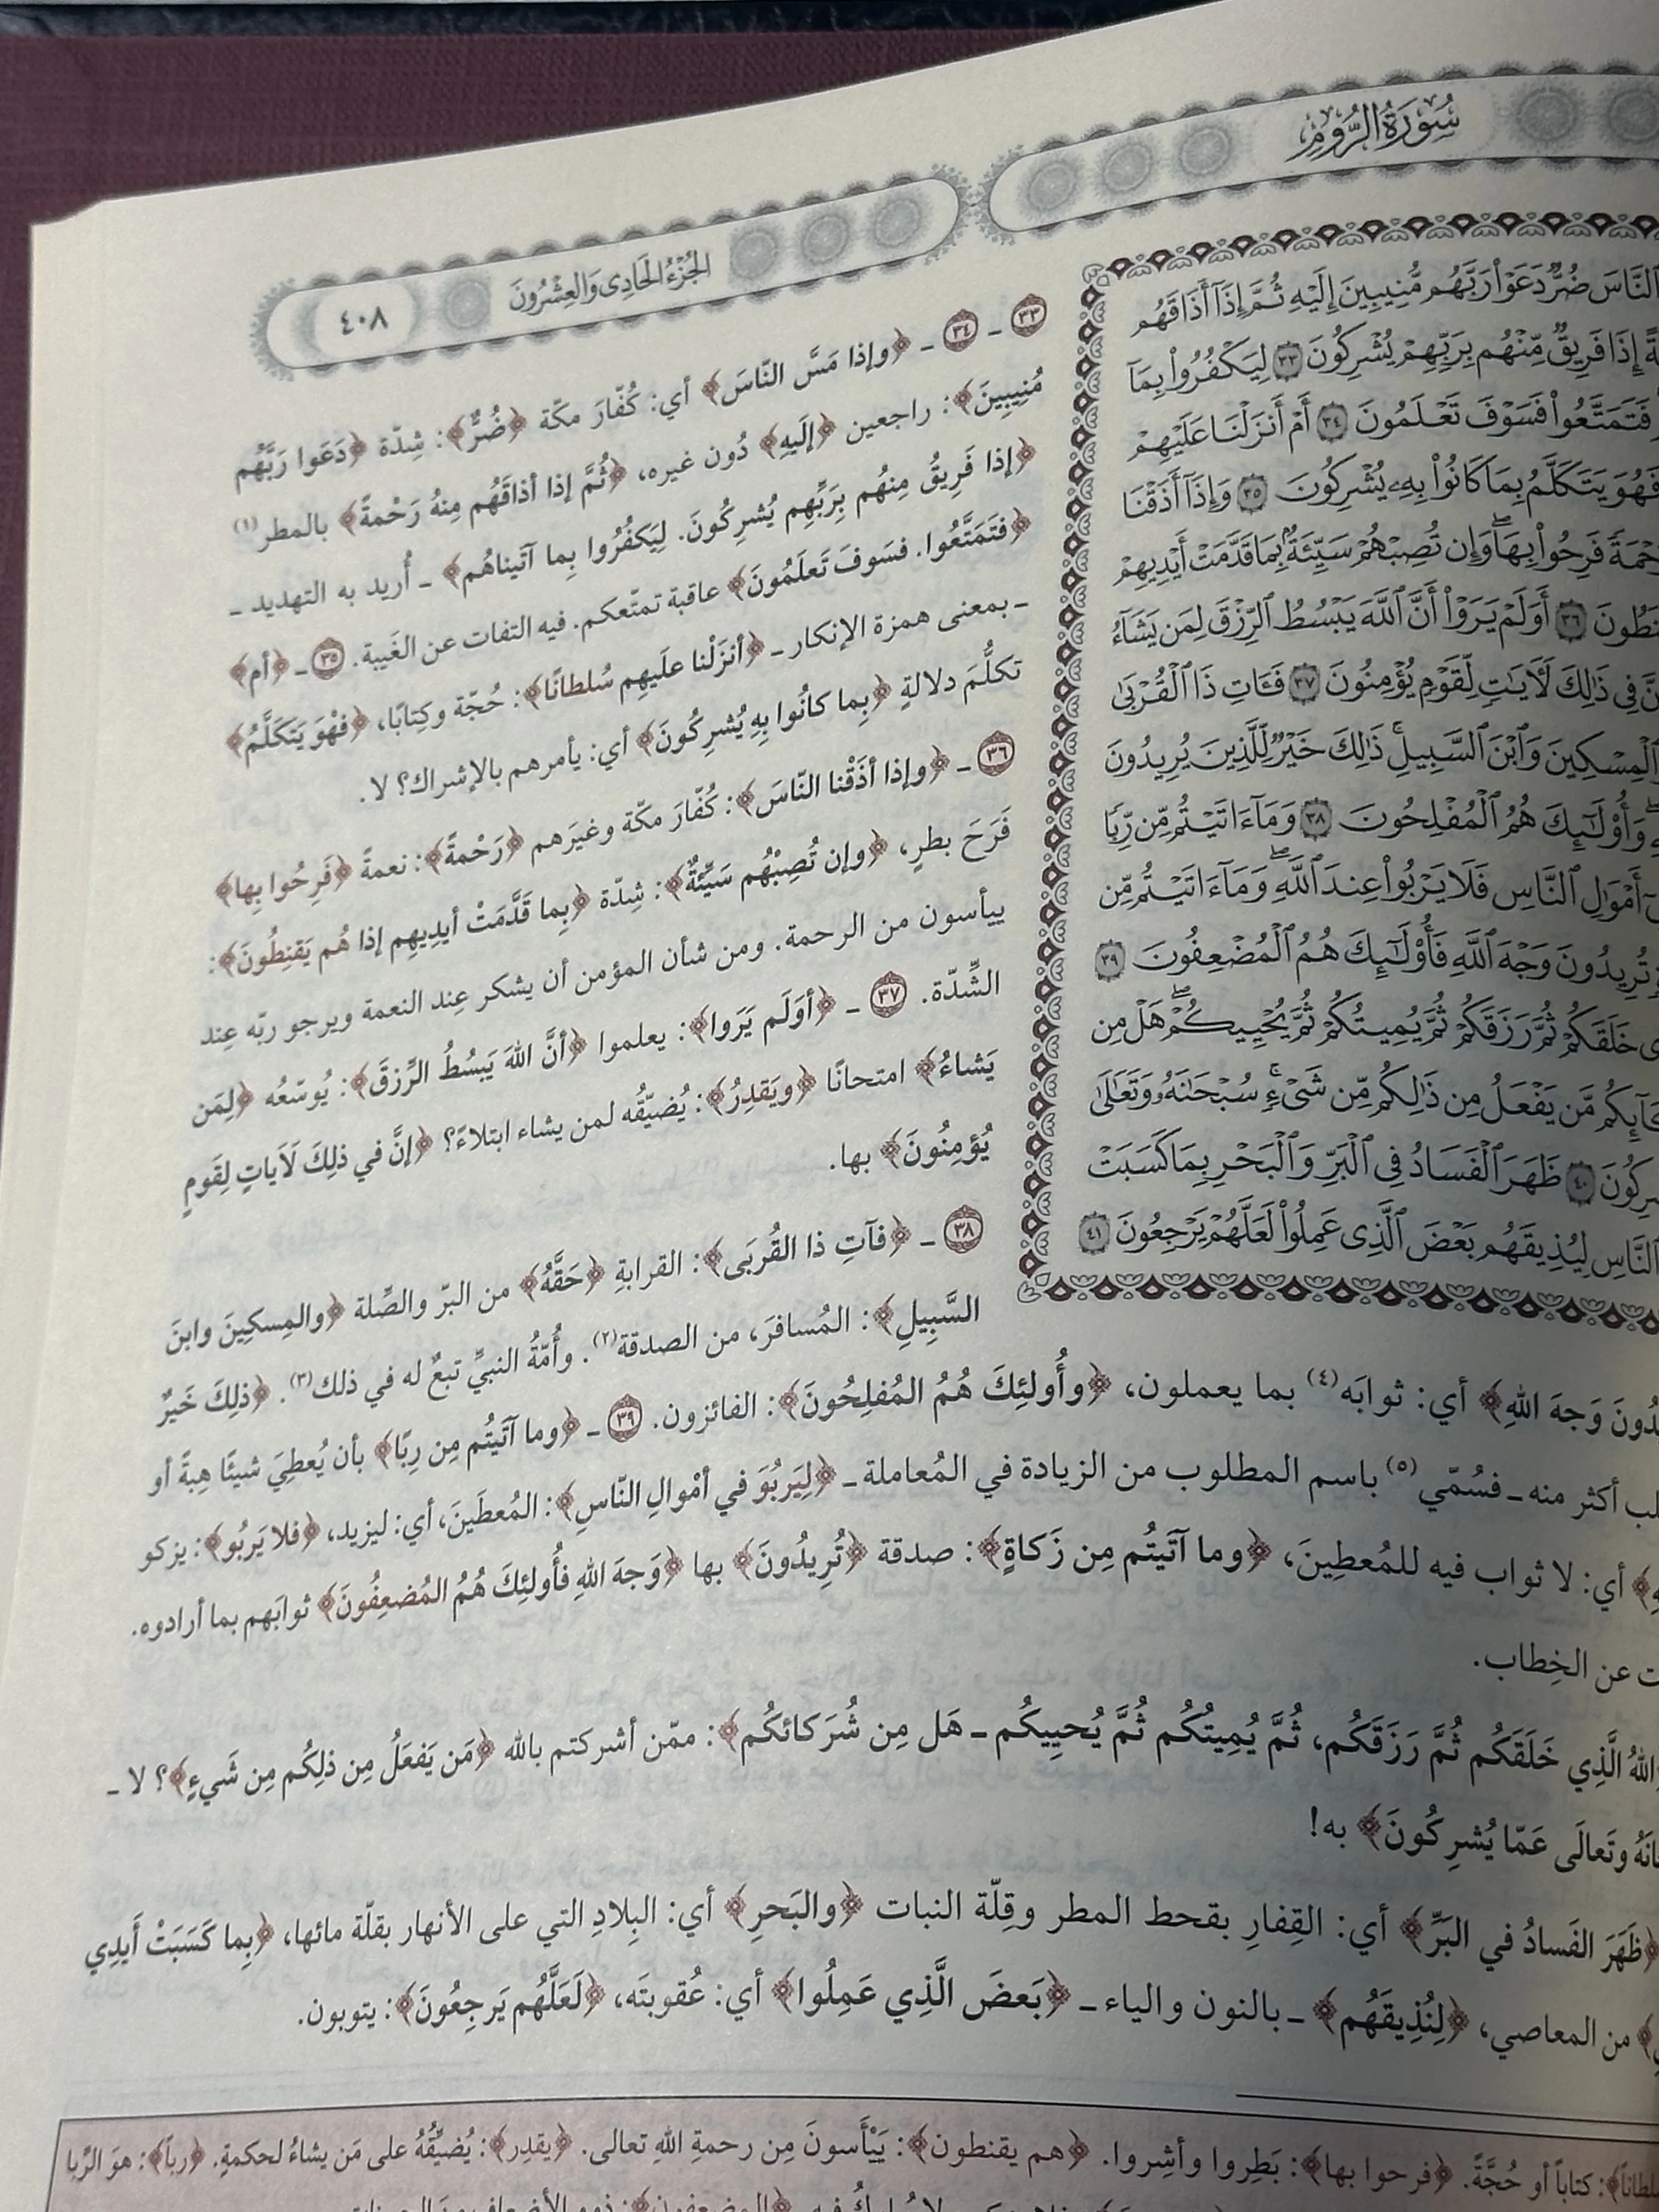 سُورَةُ الرُّومِ
الجُزْءُ الحَادِي وَالعِشْرُونَ
٤٠٨
النَّاسَ ضُرٌّ دَعَوْا۟ رَبَّهُم مُّنِيبِينَ إِلَيْهِ ثُمَّ إِذَآ أَذَاقَهُم
إِذَا فَرِيقٌ مِّنْهُم بِرَبِّهِمْ يُشْرِكُونَ ٣٣ لِيَكْفُرُوا۟ بِمَآ
فَتَمَتَّعُوا۟ فَسَوْفَ تَعْلَمُونَ ٣٤ أَمْ أَنزَلْنَا عَلَيْهِمْ
فَهُوَ يَتَكَلَّمُ بِمَا كَانُوا۟ بِهِۦ يُشْرِكُونَ ٣٥ وَإِذَآ أَذَقْنَا
فَرِحُوا۟ بِهَا ۖ وَإِن تُصِبْهُمْ سَيِّئَةٌۢ بِمَا قَدَّمَتْ أَيْدِيهِمْ
٣٦ أَوَلَمْ يَرَوْا۟ أَنَّ ٱللَّهَ يَبْسُطُ ٱلرِّزْقَ لِمَن يَشَآءُ
فِى ذَٰلِكَ لَـَٔايَـٰتٍ لِّقَوْمٍ يُؤْمِنُونَ ٣٧ فَـَٔاتِ ذَا ٱلْقُرْبَىٰ
ٱلْمِسْكِينَ وَٱبْنَ ٱلسَّبِيلِ ۚ ذَٰلِكَ خَيْرٌ لِّلَّذِينَ يُرِيدُونَ
وَأُو۟لَـٰٓئِكَ هُمُ ٱلْمُفْلِحُونَ ٣٨ وَمَآ ءَاتَيْتُم مِّن رِّبًا
أَمْوَٰلِ ٱلنَّاسِ فَلَا يَرْبُوا۟ عِندَ ٱللَّهِ ۖ وَمَآ ءَاتَيْتُم مِّن
تُرِيدُونَ وَجْهَ ٱللَّهِ فَأُو۟لَـٰٓئِكَ هُمُ ٱلْمُضْعِفُونَ ٣٩
خَلَقَكُمْ ثُمَّ رَزَقَكُمْ ثُمَّ يُمِيتُكُمْ ثُمَّ يُحْيِيكُمْ ۖ هَلْ مِن
مَّن يَفْعَلُ مِن ذَٰلِكُم مِّن شَىْءٍ ۚ سُبْحَـٰنَهُۥ وَتَعَـٰلَىٰ
٤٠ ظَهَرَ ٱلْفَسَادُ فِى ٱلْبَرِّ وَٱلْبَحْرِ بِمَا كَسَبَتْ
ٱلنَّاسِ لِيُذِيقَهُم بَعْضَ ٱلَّذِى عَمِلُوا۟ لَعَلَّهُمْ يَرْجِعُونَ ٤١
٣٣ - ٣٤ - ﴿وإذا مَسَّ النّاسَ﴾ أي: كُفّارَ مكّة ﴿ضُرٌّ﴾: شِدّة ﴿دَعَوا رَبَّهُم
مُنِيبِينَ﴾: راجعين ﴿إلَيهِ﴾ دُون غيره، ﴿ثُمَّ إذا أذاقَهُم مِنهُ رَحْمةً﴾ بالمطر(١)
﴿إذا فَرِيقٌ مِنهُم بِرَبِّهِم يُشرِكُونَ. لِيَكفُرُوا بِما آتَيناهُم﴾ - أُريد به التهديد -
﴿فتَمَتَّعُوا. فسَوفَ تَعلَمُونَ﴾ عاقبة تمتّعكم. فيه التفات عن الغَيبة. ٣٥ - ﴿أم﴾
- بمعنى همزة الإنكار - ﴿أنزَلْنا علَيهِم سُلطانًا﴾: حُجّة وكِتابًا، ﴿فهْوَ يَتَكَلَّمُ﴾
تكلُّمَ دلالةٍ ﴿بِما كانُوا بِهِ يُشرِكُونَ﴾ أي: يأمرهم بالإشراك؟ لا.
٣٦ - ﴿وإذا أذَقْنا النّاسَ﴾: كُفّارَ مكّة وغيرَهم ﴿رَحْمةً﴾: نعمةً ﴿فَرِحُوا بِها﴾
فَرَحَ بطرٍ، ﴿وإن تُصِبْهُم سَيِّئةٌ﴾: شِدّة ﴿بِما قَدَّمَتْ أيدِيهِم إذا هُم يَقنِطُونَ﴾:
ييأسون من الرحمة. ومن شأن المؤمن أن يشكر عِند النعمة ويرجو ربّه عِند
الشِّدّة. ٣٧ - ﴿أوَلَم يَرَوا﴾: يعلموا ﴿أنَّ اللهَ يَبسُطُ الرِّزقَ﴾: يُوسّعُه ﴿لِمَن
يَشاءُ﴾ امتحانًا ﴿ويَقدِرُ﴾: يُضيّقُه لمن يشاء ابتلاءً؟ ﴿إنَّ في ذلِكَ لَآياتٍ لِقَومٍ
يُؤمِنُونَ﴾ بها.
٣٨ - ﴿فآتِ ذا القُربَى﴾: القرابةِ ﴿حَقَّهُ﴾ من البرّ والصِّلة ﴿والمِسكِينَ وابنَ
السَّبِيلِ﴾: المُسافرَ، من الصدقة(٢). وأُمّةُ النبيِّ تبعٌ له في ذلك(٣). ﴿ذلِكَ خَيرٌ
وَجهَ اللهِ﴾ أي: ثوابَه(٤) بما يعملون، ﴿وأُولئِكَ هُمُ المُفلِحُونَ﴾: الفائزون. ٣٩ - ﴿وما آتَيتُم مِن رِبًا﴾ بأن يُعطِيَ شيئًا هِبةً أو
أكثر منه - فسُمّي(٥) باسم المطلوب من الزيادة في المُعاملة - ﴿لِيَربُوَ في أمْوالِ النّاسِ﴾: المُعطَينَ، أي: ليزيد، ﴿فلا يَربُو﴾: يزكو
أي: لا ثواب فيه للمُعطِينَ، ﴿وما آتَيتُم مِن زَكاةٍ﴾: صدقة ﴿تُرِيدُونَ﴾ بها ﴿وَجهَ اللهِ فأُولئِكَ هُمُ المُضعِفُونَ﴾ ثوابَهم بما أرادوه.
عن الخِطاب.
اللهُ الَّذِي خَلَقَكُم ثُمَّ رَزَقَكُم، ثُمَّ يُمِيتُكُم ثُمَّ يُحيِيكُم - هَل مِن شُرَكائكُم﴾: ممّن أشركتم بالله ﴿مَن يَفعَلُ مِن ذلِكُم مِن شَيءٍ﴾؟ لا -
وتَعالَى عَمّا يُشرِكُونَ﴾ به!
﴿ظَهَرَ الفَسادُ في البَرِّ﴾ أي: القِفارِ بقحط المطر وقِلّة النبات ﴿والبَحرِ﴾ أي: البِلادِ التي على الأنهار بقلّة مائها، ﴿بِما كَسَبَتْ أَيدِي
من المعاصي، ﴿لِنُذِيقَهُم﴾ - بالنون والياء - ﴿بَعضَ الَّذِي عَمِلُوا﴾ أي: عُقوبتَه، ﴿لَعَلَّهُم يَرجِعُونَ﴾: يتوبون.
كتاباً أو حُجَّةً. ﴿فرحوا بها﴾: بَطِروا وأشِروا. ﴿هم يقنطون﴾: يَيْأَسونَ مِن رحمةِ اللهِ تعالى. ﴿يقدِر﴾: يُضيِّقُهُ على مَن يشاءُ لحكمةٍ. ﴿رباً﴾: هوَ الرِّبا